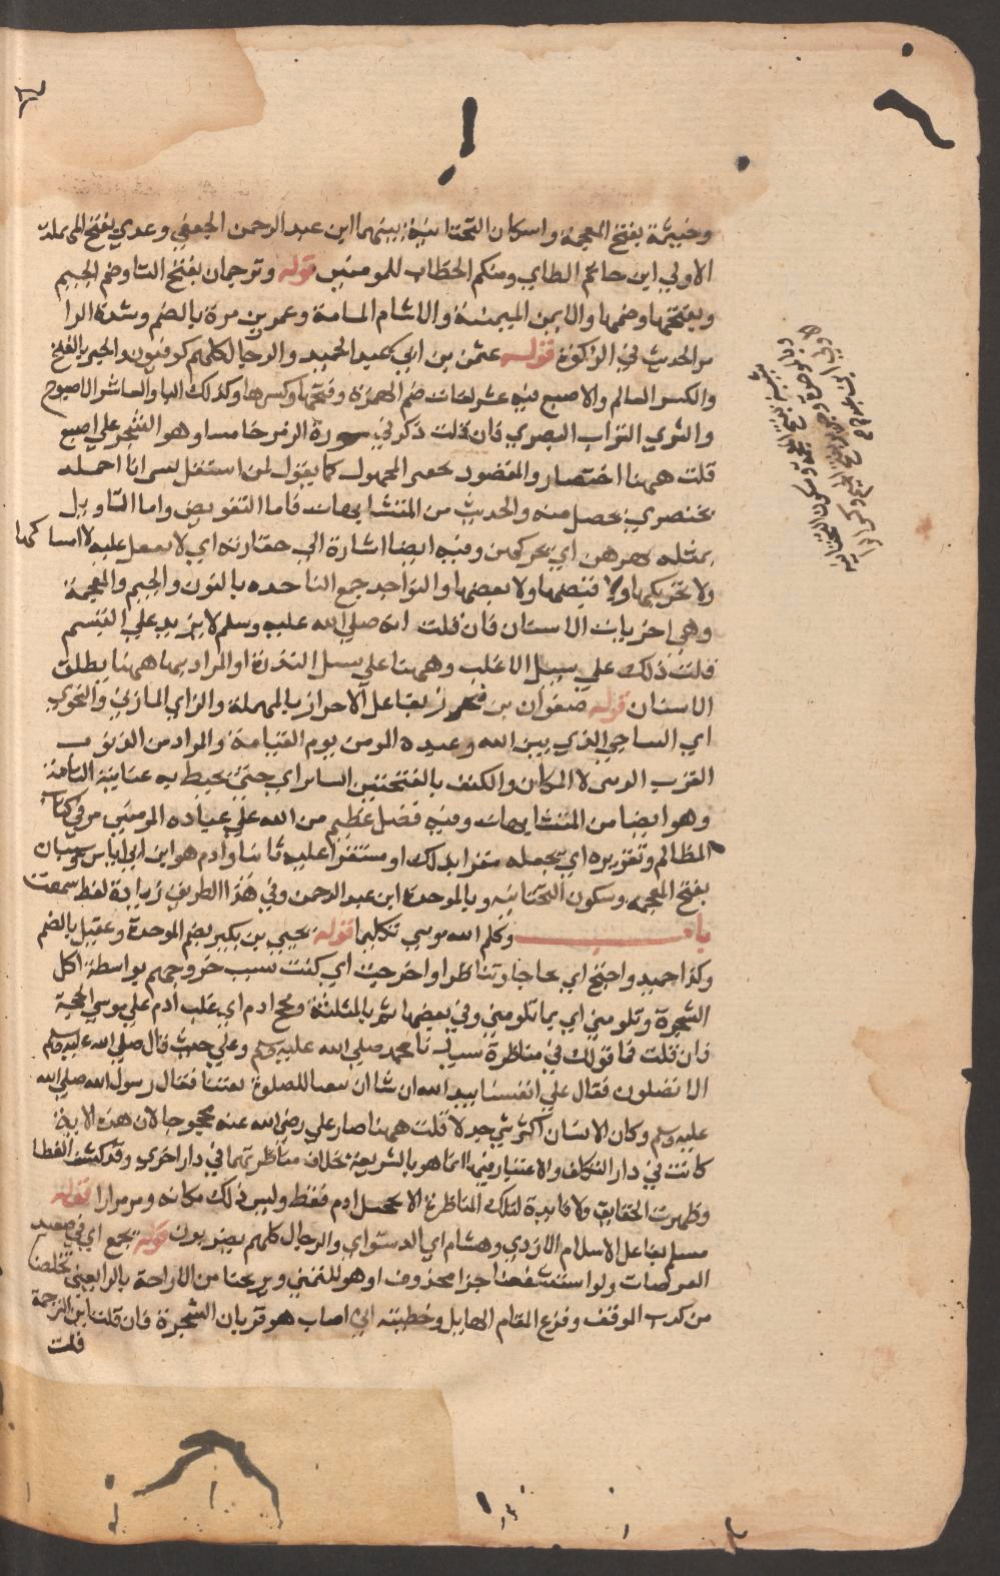 وخيثمة بفتح المعجمة واسكان التحتانية بينهما ابن عبد الرحمن الجعفي وعدي بفتح المهملة
الاولي ابن حاتم الطاي ومنكم الخطاب للمومنين قوله وترجمان بفتح التا وضم الجيم
وبفتحهما وضمهما والايمن الميمنة والاشام المشامة وعمرو بن مرة بالضم وشدة الرا
مر الحديث في الزكوة قوله عثمن بن ابي عبد الحميد والرجال كلهم كوفيون والحبر بالفتح
والكسر العالم والاصبع فيه عشر لغات ضم الهمزة وفتحها وكسرها وكذلك البا والعاشر الاصبوع
والثري التراب البصري فان قلت ذكر في سورة الزمر خامسا وهو الشجر علي اصبع
قلت ههنا اختصار والمقصود حصر المجهول كما يقول لمن استثقل نسرانا احمله
بخنصري يحصل منه والحديث من المتشابهات فاما التفويض واما التاويل
بمثله يهزهن اي يحركهن وفيه ايضا اشارة الي حقارته اي لا يثقل عليه لا امساكها
ولا تحريكها ولا قبضها ولا بعضها والنواجد جمع الناجده بالنون والجيم والمعجمة
وهي اخريات الاسنان فان قلت انه صلي الله عليه وسلم لا يزيد علي التبسم
قلت ذلك علي سبيل الاغلب وههنا علي سبيل الندرة او المراد بها ههنا مطلق
الاسنان قوله صفوان بن محرز بفاعل الاحراز بالمهملة والزاي المازني والنجوي
اي التناجي الذي بين الله وعبده المومن يوم القيامة والمراد من الدنو
القرب الرتبي لا المكاني والكنف بالفتحتين الساتر اي حتي يحيط به عنايته التامة
وهو ايضا من المتشابهات وفيه فضل عظيم من الله علي عباده المومنين مر في كتاب
المظالم وتقريره اي يجعله مقرا بذلك او مستقرا عليه ثابتا وادم هو ابن ابي اياس وشيبان
بفتح المعجمة وسكون التحتانيه وبالموحدة ابن عبد الرحمن وفي هذا الطريق زيادة لفظ سمعت
باب وكلم الله موسي تكليما قوله يحيي بن بكير بضم الموحدة وعقيل بالضم
وكذا حميد واحتج اي تحاجا وتناظرا واخرجت اي كنت سبب خروجهم بواسطة اكل
الشجرة وتلومني اي بما تلومني وفي بعضها ثم بالمثلثة وحج ادم اي غلب ادم علي موسي بالحجة
فان قلت فما قولك في مناظرة سيدنا محمد صلي الله عليه وسلم وعلي حيث قال صلي الله عليه وسلم
الا تصلون فقال علي انفسنا بيد الله ان شا ان يبعثنا للصلوة بعثنا فقال رسول الله صلي الله
عليه وسلم وكان الانسان اكثر شي جدلا قلت ههنا صار علي رضي الله عنه محجوجا لان هذه الاية
كانت في دار التكلف والاعتبار فيها انما هو بالشريعة بخلاف مناظرتهما في دار اخري وقد كشف الغطا
وظهرت الحقايق ولا فايدة لتلك المناظرة الا تخجيل ادم فقط وليس ذلك مكانه ومر مرارا قوله
مسلم بفاعل الاسلام الازدي وهشام اي الدستواي والرجال كلهم بصريون قوله يجمع اي في صعيد
العرصات ولو استشفعنا جزاه محذوف او هو للتمني ويريحنا من الاراحة بالرا يعني تخلصنا
من كرب الموقف وفزع المقام الهايل وخطيئته التي اصاب هو قربان الشجرة فان قلت اين الترجمة
قلت